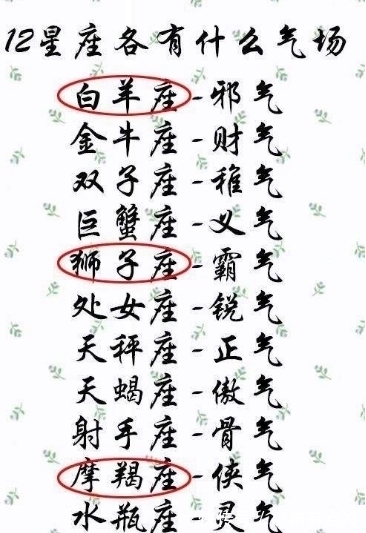 12星座各有什么气场
白羊座-邪气
金牛座-财气
双子座-稚气
巨蟹座-义气
狮子座-霸气
处女座-锐气
天秤座-正气
天蝎座-傲气
射手座-骨气
摩羯座-侠气
水瓶座-灵气